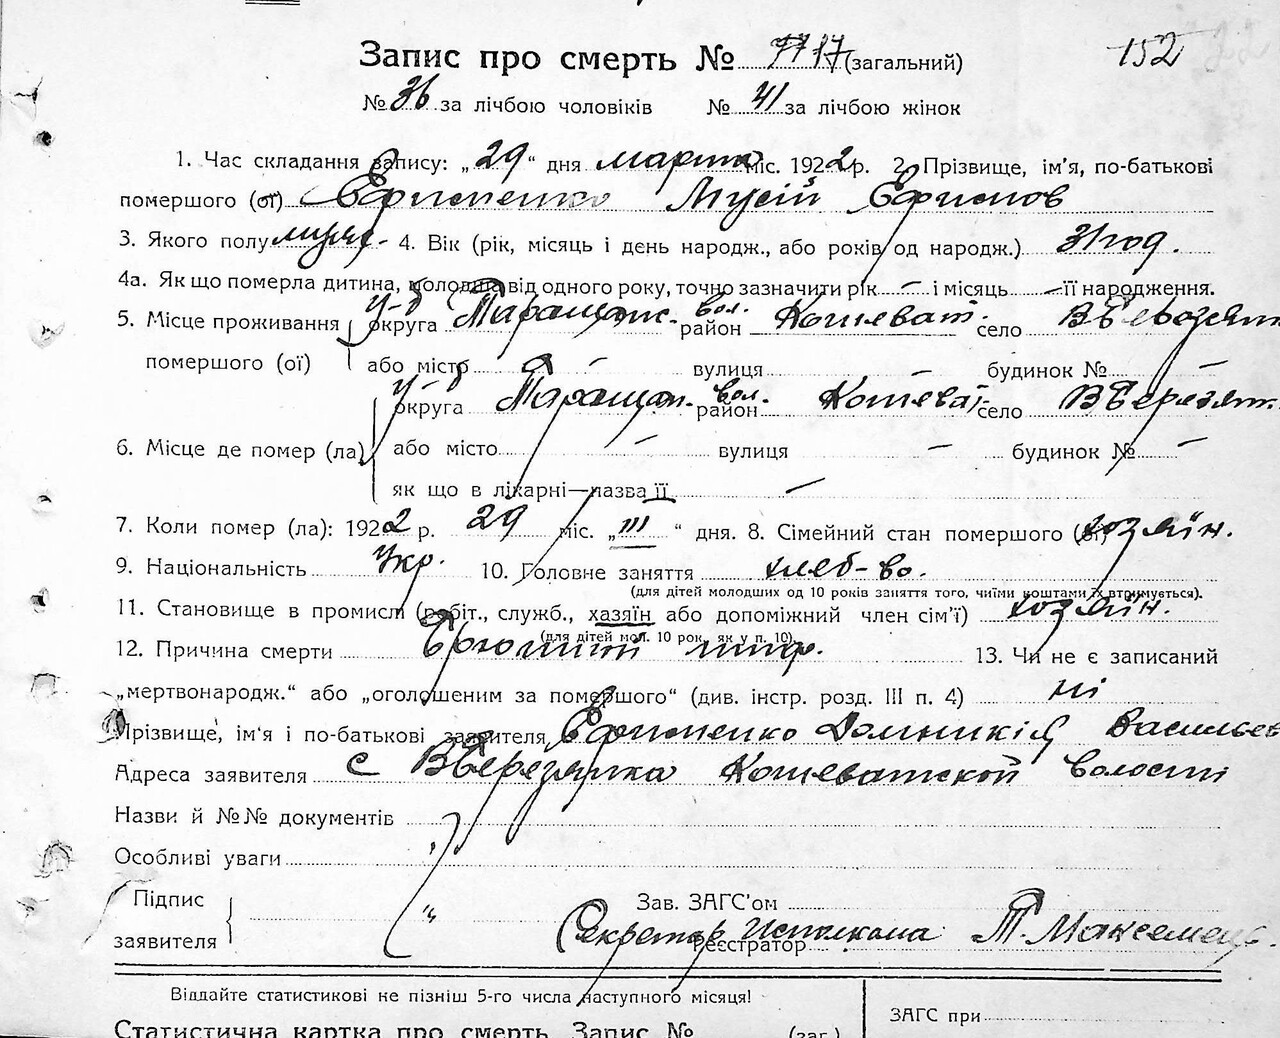 152
Запис про смерть № 77 17 (загальний)
№ 36 за лічбою чоловіків № 41 за лічбою жінок
1. Час складання запису: „29“ дня марта міс. 1922 р. 2. Прізвище, ім'я, по-батькові
помершого (ої) Ефименко Мусій Ефимов
3. Якого полу муж. 4. Вік (рік, місяць і день народж., або років од народж.) 31 год.
4а. Як що померла дитина, молодша від одного року, точно зазначити рік — і місяць — її народження.
5. Місце проживання у-д округа Таращанс. вол. район Кошеват. село В Березян
помершого (ої) або місто — вулиця — будинок № —
у-д округа Таращан. вол. район Кошеват. село В Березян.
6. Місце де помер (ла) або місто — вулиця — будинок № —
як що в лікарні—назва її —
7. Коли помер (ла): 1922 р. 29 міс. „III“ дня. 8. Сімейний стан помершого (ої) хозяїн.
9. Національність Укр. 10. Головне заняття хлеб-во.
(для дітей молодших од 10 років заняття того, чиїми коштами їх втримується).
11. Становище в промислі (робіт., служб., хазяїн або допоміжний член сім'ї) хозяїн.
(для дітей мол. 10 рок. як у п. 10).
12. Причина смерти Брюшний тиф. 13. Чи не є записаний
„мертвонародж.“ або „оголошеним за помершого“ (див. інстр. розд. III п. 4) ні
Прізвище, ім'я і по-батькові заявителя Ефименко Домникія Васильев
Адреса заявителя с ВБерезянка Кошеватской волости
Назви й №№ документів
Особливі уваги
Підпис
заявителя
Зав. ЗАГС'ом
Секретар Исполкома Т. Максемец
Реєстратор
Віддайте статистикові не пізніш 5-го числа наступного місяця!
Статистична картка про смерть. Запис № (заг.)
ЗАГС при